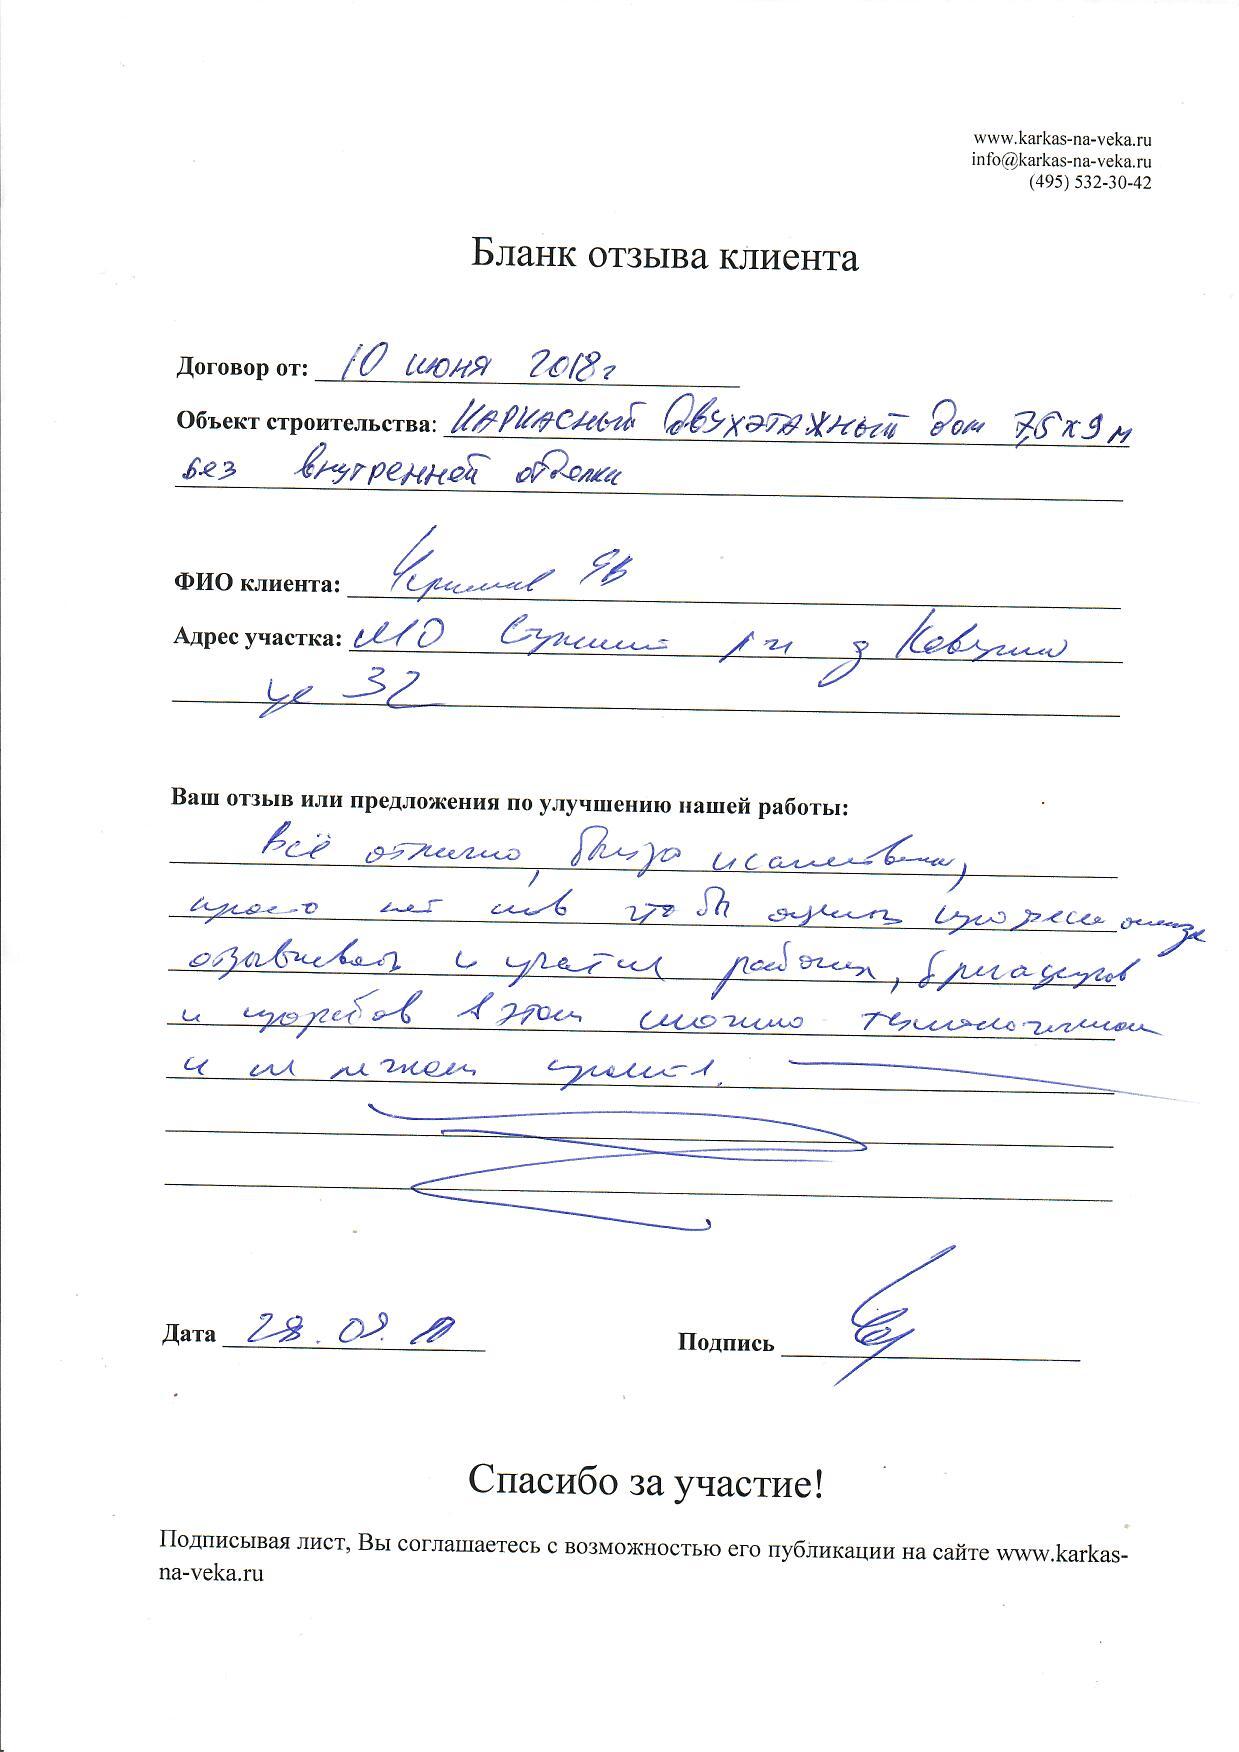 www.karkas-na-veka.ru
info@karkas-na-veka.ru
(495) 532-30-42
Бланк отзыва клиента
Договор от: 10 июня 2018г
Объект строительства: КАРКАСНЫЙ ДВУХЭТАЖНЫЙ дом 7,5х9 м
без внутренней отделки
ФИО клиента: ЯВ
Адрес участка: МО р-н д
уч 32
Ваш отзыв или предложения по улучшению нашей работы:
Всё отлично, быстро и качественно,
просто нет слов чтобы оценить
отзывчивость и участие рабочих, бригадиров
и прорабов в этом сложно технологичном
и не легком
Дата 28.09.
Подпись
Спасибо за участие!
Подписывая лист, Вы соглашаетесь с возможностью его публикации на сайте www.karkas-
na-veka.ru